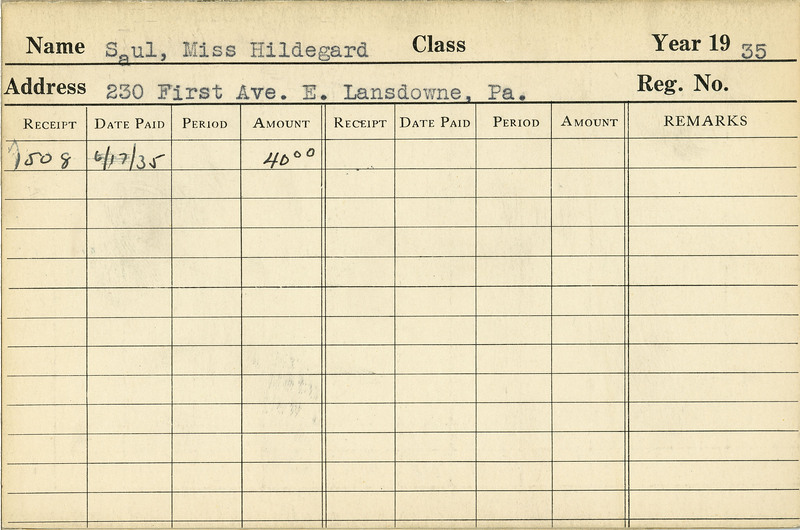 Name Saul, Miss Hildegard Class Year 19 35
Address 230 First Ave. E. Lansdowne, Pa. Reg. No.
RECEIPT DATE PAID PERIOD AMOUNT RECEIPT DATE PAID PERIOD AMOUNT REMARKS
1508 6/17/35 40⁰⁰